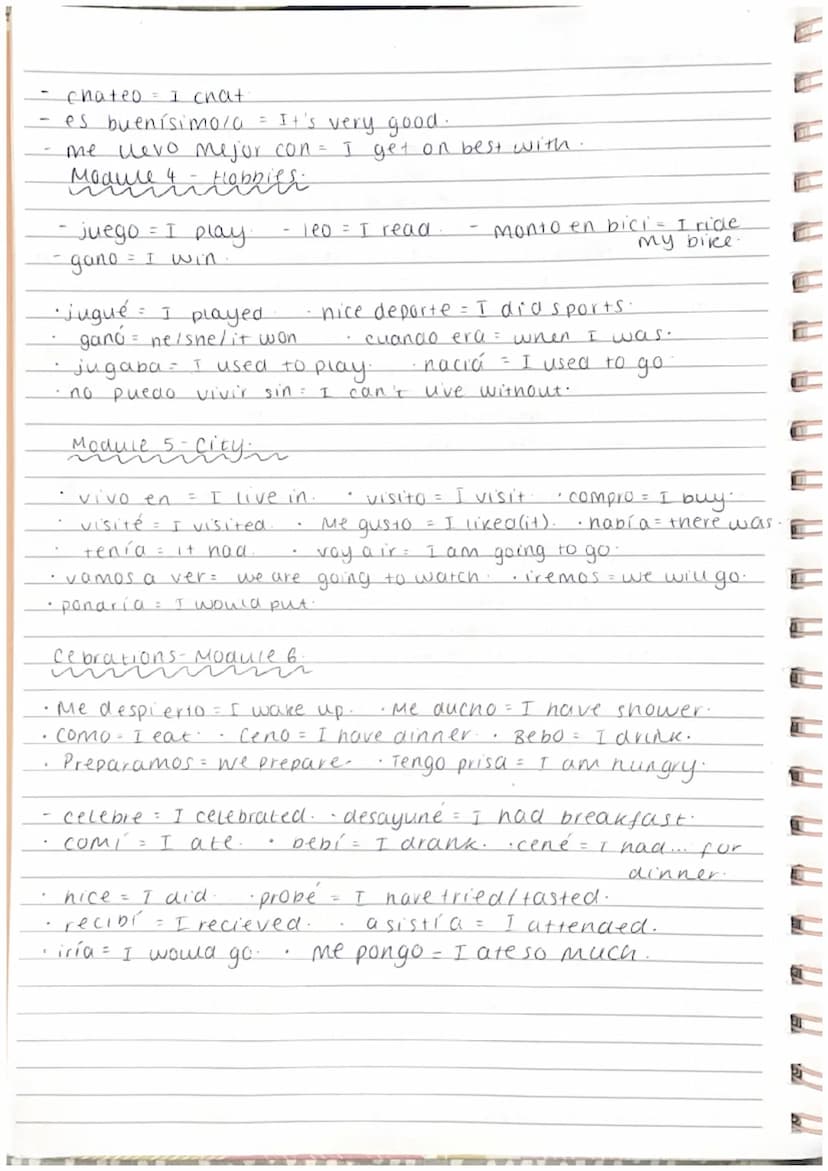 - chateo = I chat
- es buenísimo/a = It's very good.
- me llevo mejor con = I get on best with.
Module 4 - Hobbies.
- juego = I play. - leo = I read. - monto en bici = I ride
my bike.
- gano = I win.
· jugué = I played · hice deporte = I did sports.
· ganó = he/she/it won · cuando era = when I was.
· jugaba = I used to play. · hacía = I used to go
· no puedo vivir sin = I can't live without.
Module 5 - City.
· vivo en = I live in. · visito = I visit · compro = I buy.
· visité = I visited. · Me gusto = I liked(it). · había = there was.
· tenía = it had. · voy a ir = I am going to go.
· vamos a ver = we are going to watch. · iremos = we will go.
· pondría = I would put.
Cebrations - Module 6.
· Me despierto = I wake up. · Me ducho = I have shower.
· Como = I eat. · Ceno = I have dinner. · Bebo = I drink.
· Preparamos = we prepare. · Tengo prisa = I am hungry.
- celebre = I celebrated. · desayuné = I had breakfast.
· comí = I ate. · bebí = I drank. · cené = I had... for
dinner.
· hice = I did. · probé = I have tried/tasted.
· recibí = I recieved. · asistía = I attended.
· iría = I would go. · Me pongo = I ate so much.